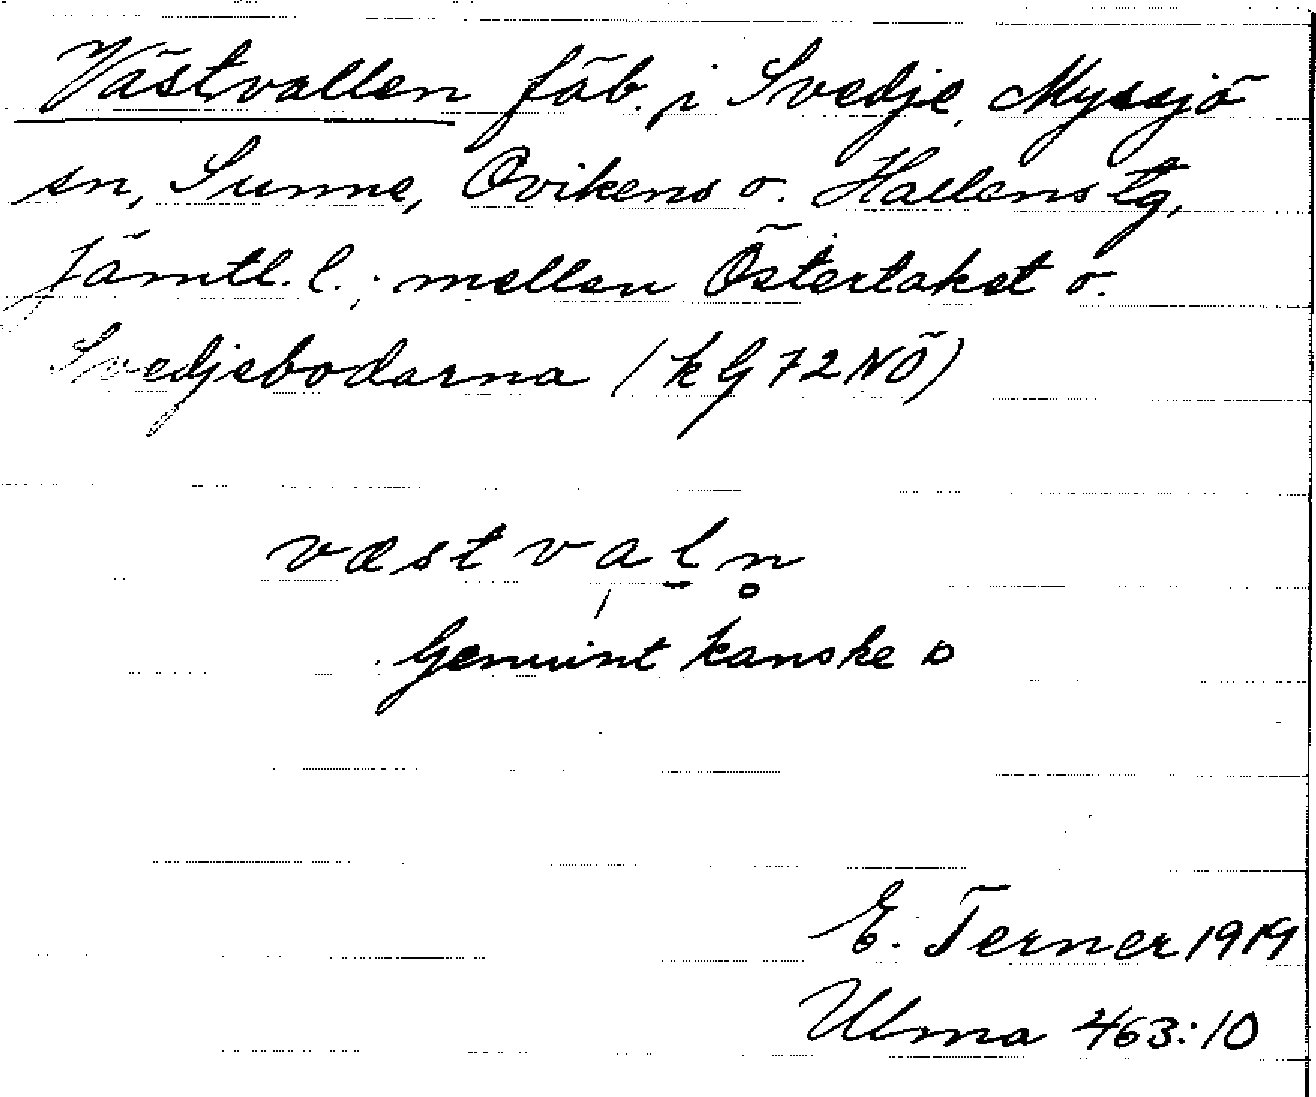 Västvallen fäb. i Svedje, Myssjö
sn, Sunne, Ovikens o. Hallens tg,
Jämtl. l.; mellan Österlaket o.
Svedjebodarna (k G 72 NÖ)
væst valn̥
Genuint kanske o
E. Terner 1919
Ulma 463:10